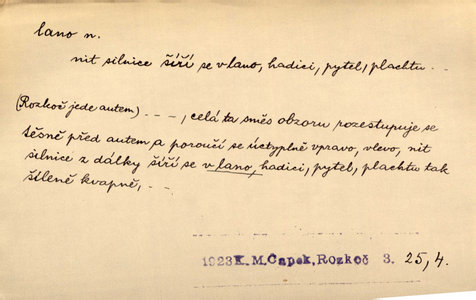 lano n.
nit silnice šíří se v lano, hadici, pytel, plachtu - -
(Rozkoč jede autem) - - -, celá ta směs obzoru rozestupuje se
těsně před autem a poroučí se úctyplně vpravo, vlevo, nit
silnice z dálky šíří se v lano, hadici, pytel, plachtu tak
šíleně kvapně, - -
1923 K. M. Čapek, Rozkoč 3. 25, 4.